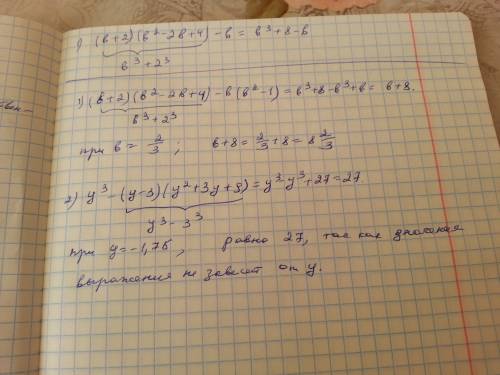 1) (b+2)(b²-2b+4)-b = b³+8-b
b³+2³
1) (b+2)(b²-2b+4)-b(b²-1)=b³+8-b³+b= b+8.
b³+2³
при b= 2/3; b+8= 2/3+8=8 2/3
2) y³-(y-3)(y²+3y+9)=y³-y³+27=27
y³-3³
при y=-1,76, равно 27, так как значения
выражения не зависит от y.